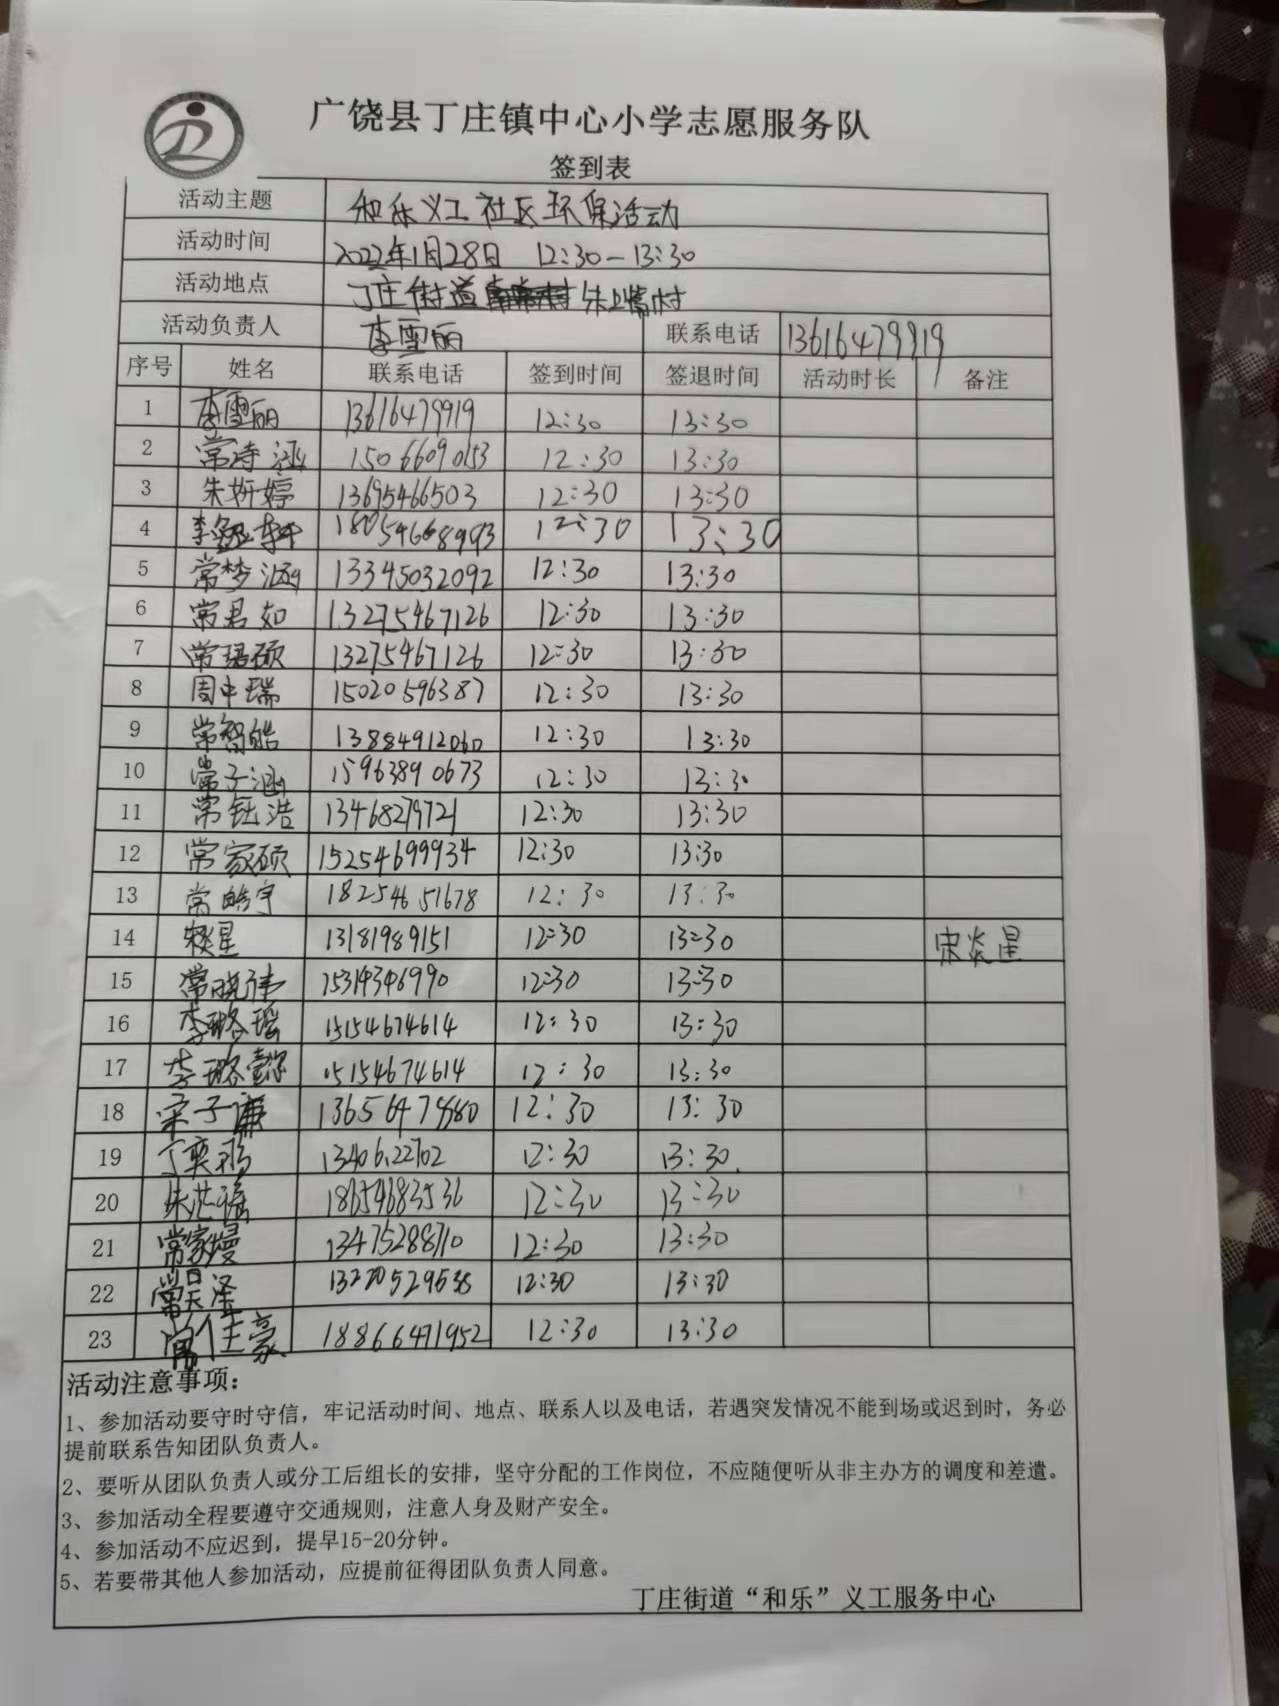 广饶县丁庄镇中心小学志愿服务队
签到表
活动主题 和乐义工社区环保活动
活动时间 2022年1月28日 12:30—13:30
活动地点 丁庄街道 朱上嘴村
活动负责人 李雪丽 联系电话 13616479919
序号 姓名 联系电话 签到时间 签退时间 活动时长 备注
1 李雪丽 13616479919 12:30 13:30
2 常诗涵 15066090153 12:30 13:30
3 朱妍婷 13695466503 12:30 13:30
4 12:30 13:30
5 常梦涵 13345032092 12:30 13:30
6 常君如 13275467126 12:30 13:30
7 常珺硕 13275467126 12:30 13:30
8 周中瑞 15020596387 12:30 13:30
9 常智皓 13884912060 12:30 13:30
10 常子涵 15963890673 12:30 13:30
11 常钰浩 13468279721 12:30 13:30
12 常家硕 15254699934 12:30 13:30
13 常皓宇 18254651678 12:30 13:30
14 13181989151 12:30 13:30 宋炎星
15 常晓伟 15314346990 12:30 13:30
16 李璐瑶 15154674614 12:30 13:30
17 李璐懿 15154674614 12:30 13:30
18 宋子谦 12:30 13:30
19 丁奕鸿 12:30 13:30
20 18654683536 12:30 13:30
21 常家嫚 13475288710 12:30 13:30
22 常昊泽 13220529538 12:30 13:30
23 常仕豪 18866471952 12:30 13:30
活动注意事项：
1、参加活动要守时守信，牢记活动时间、地点、联系人以及电话，若遇突发情况不能到场或迟到时，务必
提前联系告知团队负责人。
2、要听从团队负责人或分工后组长的安排，坚守分配的工作岗位，不应随便听从非主办方的调度和差遣。
3、参加活动全程要遵守交通规则，注意人身及财产安全。
4、参加活动不应迟到，提早15-20分钟。
5、若要带其他人参加活动，应提前征得团队负责人同意。
丁庄街道“和乐”义工服务中心